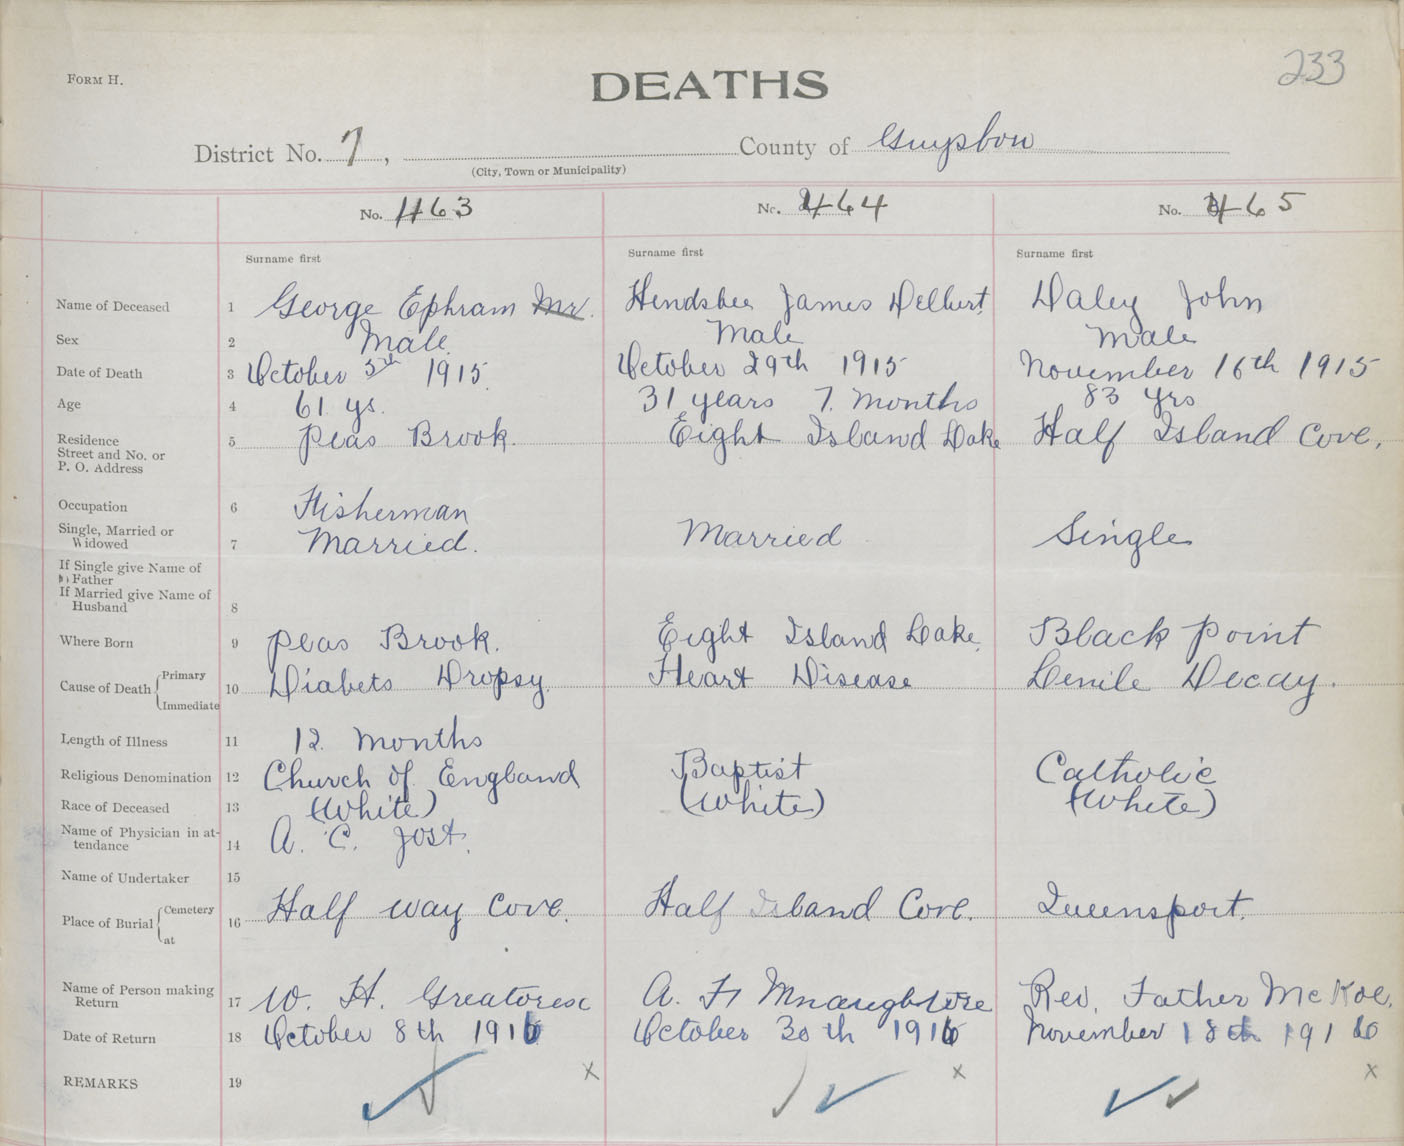 233
FORM H.
DEATHS
District No. 7, County of Guysboro
(City, Town or Municipality)
No. 463 No. 464 No. 465
Surname first Surname first Surname first
Name of Deceased 1 George Ephram Mr. Hendsbee James Delbert Daley John
Sex 2 Male Male Male
Date of Death 3 October 5th 1915. October 29th 1915 November 16th 1915
Age 4 61 ys. 31 years 7. Months 83 yrs
Residence Street and No. or P. O. Address 5 Peas Brook. Eight Island Lake Half Island Cove.
Occupation 6 Fisherman
Single, Married or Widowed 7 Married. Married Single
If Single give Name of Father
If Married give Name of Husband 8
Where Born 9 Peas Brook. Eight Island Lake. Black Point
Cause of Death Primary Immediate 10 Diabets Dropsy. Heart Disease Senile Decay.
Length of Illness 11 12. Months
Religious Denomination 12 Church of England Baptist Catholic
Race of Deceased 13 (White) (White) (White)
Name of Physician in attendance 14 A. C. Jost.
Name of Undertaker 15
Place of Burial Cemetery at 16 Half way Cove. Half Island Cove. Queensport.
Name of Person making Return 17 W. H. Greatorex A. F. Rev. Father McKoe.
Date of Return 18 October 8th 1916 October 30th 1916 November 18th 1916
REMARKS 19 x x x